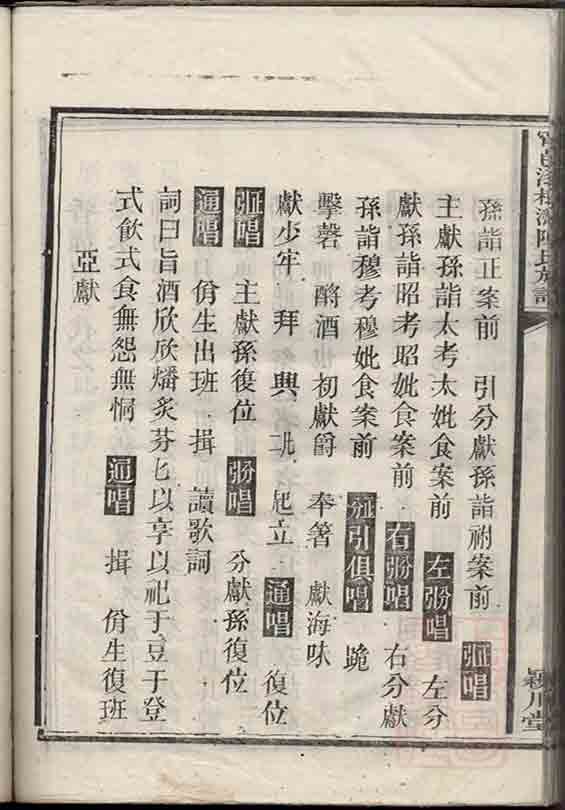 陳氏族譜
穎川堂
孫詣正案前 引分獻孫詣祔案前 引正唱
主獻孫詣太考太妣食案前 左引分唱 左分
獻孫詣昭考昭妣食案前 右引分唱 右分獻
孫詣穆考穆妣食案前 分正引俱唱 跪
擊磬 酹酒 初獻爵 奉箸 獻海味
獻少牢 拜 興 起立 通唱 復位
引正唱 主獻孫復位 引分唱 分獻孫復位
通唱 佾生出班 揖 讀歌詞
詞曰旨酒欣欣燔炙芬匕以享以祀于豆于登
式飲式食無怨無恫 通唱 揖 佾生復班
亞獻